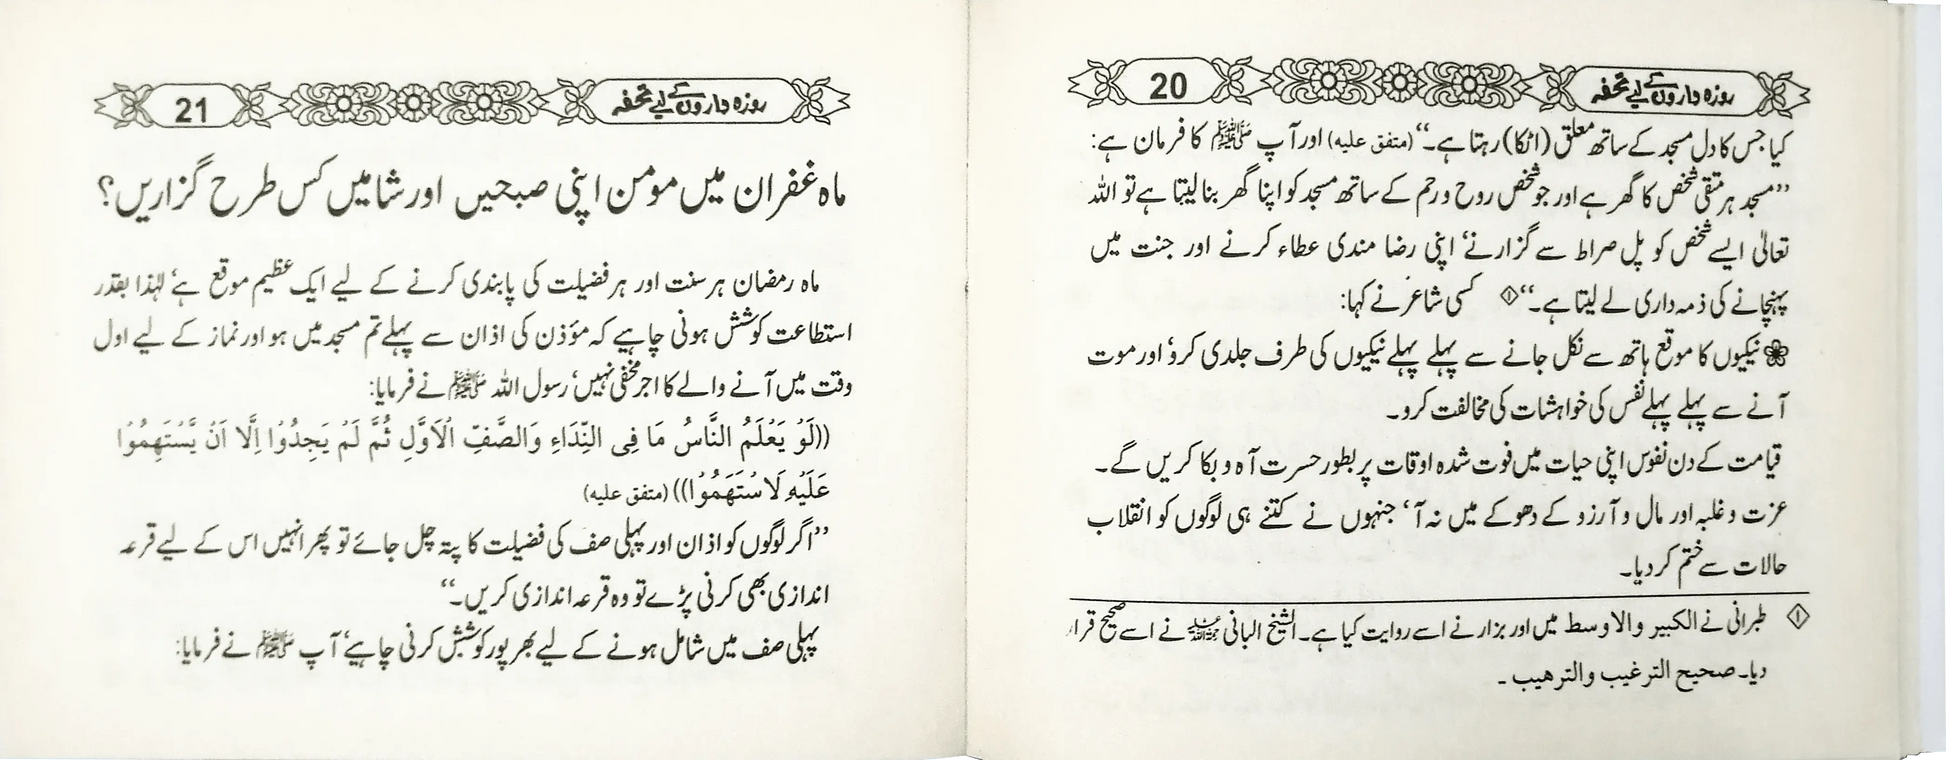 روزہ داروں کے لیے تحفہ 20
کیا جس کا دل مسجد کے ساتھ معلق (اٹکا) رہتا ہے۔‘‘ (متفق علیہ) اور آپ ﷺ کا فرمان ہے:
’’مسجد ہر متقی شخص کا گھر ہے اور جو شخص روح و رحم کے ساتھ مسجد کو اپنا گھر بنا لیتا ہے تو اللہ
تعالیٰ ایسے شخص کو پل صراط سے گزارنے‘ اپنی رضا مندی عطاء کرنے اور جنت میں
پہنچانے کی ذمہ داری لے لیتا ہے۔‘‘ ① کسی شاعر نے کہا:
❀ نیکیوں کا موقع ہاتھ سے نکل جانے سے پہلے پہلے نیکیوں کی طرف جلدی کرو‘ اور موت
آنے سے پہلے پہلے نفس کی خواہشات کی مخالفت کرو۔
قیامت کے دن نفوس اپنی حیات میں فوت شدہ اوقات پر بطور حسرت آہ و بکا کریں گے۔
عزت و غلبہ اور مال و آرزو کے دھوکے میں نہ آ‘ جنہوں نے کتنے ہی لوگوں کو انقلاب
حالات سے ختم کر دیا۔
① طبرانی نے الکبیر والاوسط میں اور بزار نے اسے روایت کیا ہے۔ الشیخ البانی رحمہ اللہ نے اسے صحیح قرار
دیا۔ صحیح الترغیب والترھیب ۔
روزہ داروں کے لیے تحفہ 21
ماہ غفران میں مومن اپنی صبحیں اور شامیں کس طرح گزاریں؟
ماہ رمضان ہر سنت اور ہر فضیلت کی پابندی کرنے کے لیے ایک عظیم موقع ہے‘ لہٰذا بقدر
استطاعت کوشش ہونی چاہیے کہ مؤذن کی اذان سے پہلے تم مسجد میں ہو اور نماز کے لیے اول
وقت میں آنے والے کا اجر مخفی نہیں‘ رسول اللہ ﷺ نے فرمایا:
((لَوْ يَعْلَمُ النَّاسُ مَا فِى النِّدَاءِ وَالصَّفِّ الْاَوَّلِ ثُمَّ لَمْ يَجِدُوْا اِلَّا اَنْ يَّسْتَهِمُوْا
عَلَيْهِ لَاسْتَهَمُوْا)) (متفق علیہ)
’’اگر لوگوں کو اذان اور پہلی صف کی فضیلت کا پتہ چل جائے تو پھر انہیں اس کے لیے قرعہ
اندازی بھی کرنی پڑے تو وہ قرعہ اندازی کریں۔‘‘
پہلی صف میں شامل ہونے کے لیے بھرپور کوشش کرنی چاہیے‘ آپ ﷺ نے فرمایا: